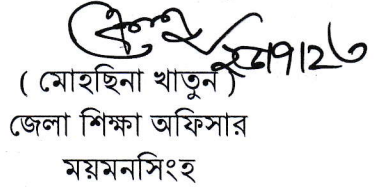 ( মোহছিনা খাতুন )
জেলা শিক্ষা অফিসার
ময়মনসিংহ